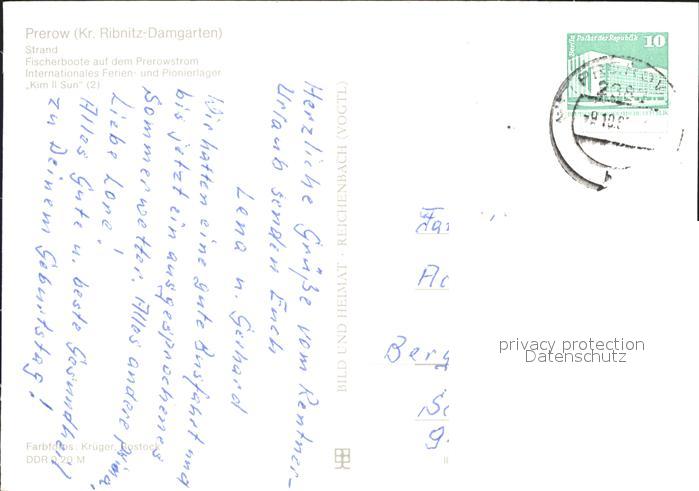 Prerow (Kr. Ribnitz-Damgarten)
Strand
Fischerboote auf dem Prerowstrom
Internationales Ferien- und Pionierlager
„Kim Il Sun" (2)
Herzliche Grüße vom Rentner-
Urlaub senden Euch
Lena u. Gerhard
Wir hatten eine gute Ausfahrt und
bis jetzt ein ausgesprochenes
Sommerwetter. Alles andere
Liebe Lore!
Alles Gute u. beste Gesundheit
zu Deinem Geburtstag!
Farbfotos: Krüger, Rostock
DDR 0,20 M
BILD UND HEIMAT · REICHENBACH (VOGTL)
Berlin Palast der Republik 10
Fa
Berg
privacy protection
Datenschutz